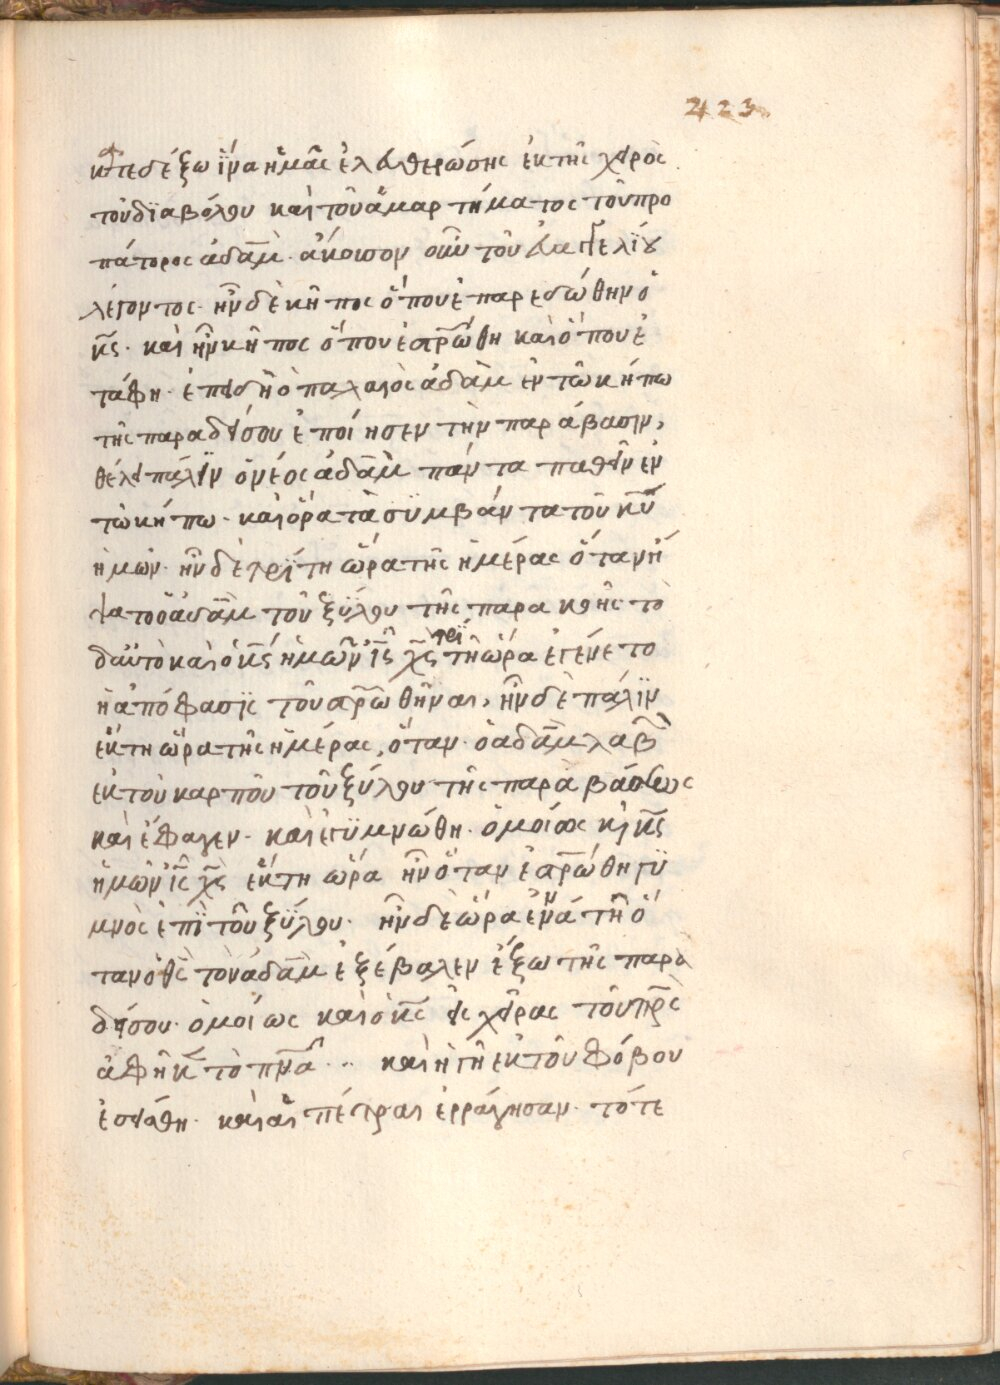 423
κατεδέξω ἵνα ἡμᾶς ἐλευθερώσης ἐκ τῆς χειρὸς
τοῦ δϊαβόλου καὶ τοῦ ἁμαρτήματος τοῦ προ
πάτορος ἀδὰμ. ἀκουσον οὖν τοῦ εὐαγγελίου
λέγοντος· ἦν δὲ κῆπος ὅπου ἐπαρεδώθην ὁ
κ̅ς̅. καὶ ἦν κῆπος ὅπου ἐσταυρώθη καὶ ὅπου ἐ
τάφη. ἐπειδῆ ὁ παλαιὸς ἀδὰμ ἐν τῶ κήπω
τῆς παραδείσου ἐποίησεν τὴν παράβασιν,
θέλει πάλϊν ὁ νέος ἀδὰμ πάντα παθεῖν ἐν
τῶ κήπω. καὶ ὅρα τὰ σϋμβάντα τοῦ κ̅υ̅
ἡμῶν. ἦν δὲ τρίτη ὥρα τῆς ἡμέρας ὅταν ἥ
ψατο ὁ ἀδὰμ τοῦ ξϋλου τῆς παρακοῆς το
δαὐτὸ καὶ ὁ κ̅ς̅ ἡμῶν ι̅ς̅ χ̅ς̅ τρίτη ὥρα ἐγένετο
ἡ ἀπόφασϊς τοῦ σταυρωθῆναι, ἦν δὲ πάλϊν
ἕκτη ὥρα τῆς ἡμέρας, ὅταν ὁ ἀδὰμ λαβὼν
ἐκ τοῦ καρποῦ τοῦ ξύλου τῆς παραβάσεως
καὶ ἔφαγεν. καὶ ἐγϋμνώθη. ὁμοίως καὶ κ̅ς̅
ἡμῶν ι̅ς̅ χ̅ς̅ ἕκτη ὥρα ἦν ὅταν ἐσταυρώθη γϋ
μνὸς ἐπὶ τοῦ ξϋλου. ἦν δὲ ὥρα ἐννάτη ὅ
ταν ὁ θ̅ς̅ τὸν ἀδὰμ ἐξέβαλεν ἔξω τῆς παρα
δείσου. ὁμοίως καὶ ὁ κ̅ς̅ εἰς χεῖρας τοῦ π̅ρ̅ς̅
ἀφῆκε τὸ π̅ν̅α̅ .. καὶ ἡ γῆ ἐκ τοῦ φόβου
ἐσείσθη. καὶ αἱ πέτραι ἐρράγησαν. τότε